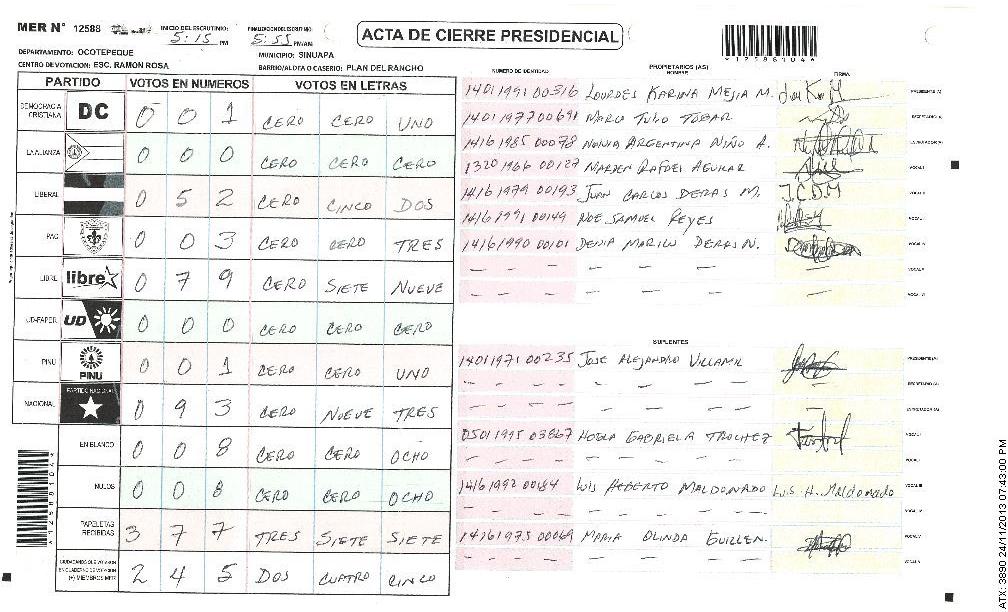 MER N° 12588
INICIO DEL ESCRUTINIO: 5:15 PM
FINALIZACION DEL ESCRUTINIO: 5:55 PM/AM
ACTA DE CIERRE PRESIDENCIAL
*1258810 4*
DEPARTAMENTO: OCOTEPEQUE
MUNICIPIO: SINUAPA
CENTRO DE VOTACION: ESC. RAMON ROSA
BARRIO/ALDEA O CASERIO: PLAN DEL RANCHO
PARTIDO VOTOS EN NUMEROS VOTOS EN LETRAS
DEMOCRACIA CRISTIANA DC 0 0 1 CERO CERO UNO
LA ALIANZA 0 0 0 CERO CERO CERO
LIBERAL 0 5 2 CERO CINCO DOS
PAC 0 0 3 CERO CERO TRES
LIBRE libre 0 7 9 CERO SIETE NUEVE
UD-FAPER UD 0 0 0 CERO CERO CERO
PINU PINU 0 0 1 CERO CERO UNO
NACIONAL PARTIDO NACIONAL 0 9 3 CERO NUEVE TRES
EN BLANCO 0 0 8 CERO CERO OCHO
NULOS 0 0 8 CERO CERO OCHO
PAPELETAS RECIBIDAS 3 7 7 TRES SIETE SIETE
CIUDADANOS QUE VOTARON EN CUADERNO DE VOTACION (+) MIEMBROS MER 2 4 5 DOS CUATRO CINCO
NUMERO DE IDENTIDAD PROPIETARIOS (AS) NOMBRE FIRMA
1401 1991 00316 LOURDES KARINA MEJIA M. PRESIDENTE (A)
1401 1977 00691 MARCO TULIO TOBAR SECRETARIO (A)
1416 1985 00078 ARGENTINA NIÑO A. ESCRUTADOR (A)
1320 1966 00127 RAFAEL AGUILAR VOCAL I
1416 1979 00193 JUAN CARLOS DERAS M. J.C.D.M VOCAL II
1416 1991 00149 NOE SAMUEL REYES VOCAL III
1416 1990 00101 DENIA MARILU DERAS N. VOCAL IV
VOCAL V
VOCAL VI
SUPLENTES
1401 1971 00235 JOSE ALEJANDRO VILLAMIL PRESIDENTE (A)
SECRETARIO (A)
ESCRUTADOR (A)
0501 1995 03867 GABRIELA TROCHEZ VOCAL I
VOCAL II
1416 1992 00184 LUIS HEBERTO MALDONADO Luis H. Maldonado VOCAL III
VOCAL IV
1416 1975 00069 MARIA OLINDA GUILLEN. VOCAL V
VOCAL VI
ATX: 3890 24/11/2013 07:43:00 PM